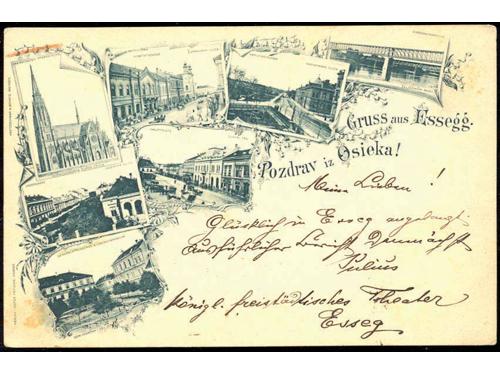 Gruss aus Essegg.
Pozdrav iz Osieka!
Meine Lieben!
Glücklich in Esseg angelangt
Ausführlicher Bericht demnächst
Julius
königl. freistädtisches Theater
Esseg